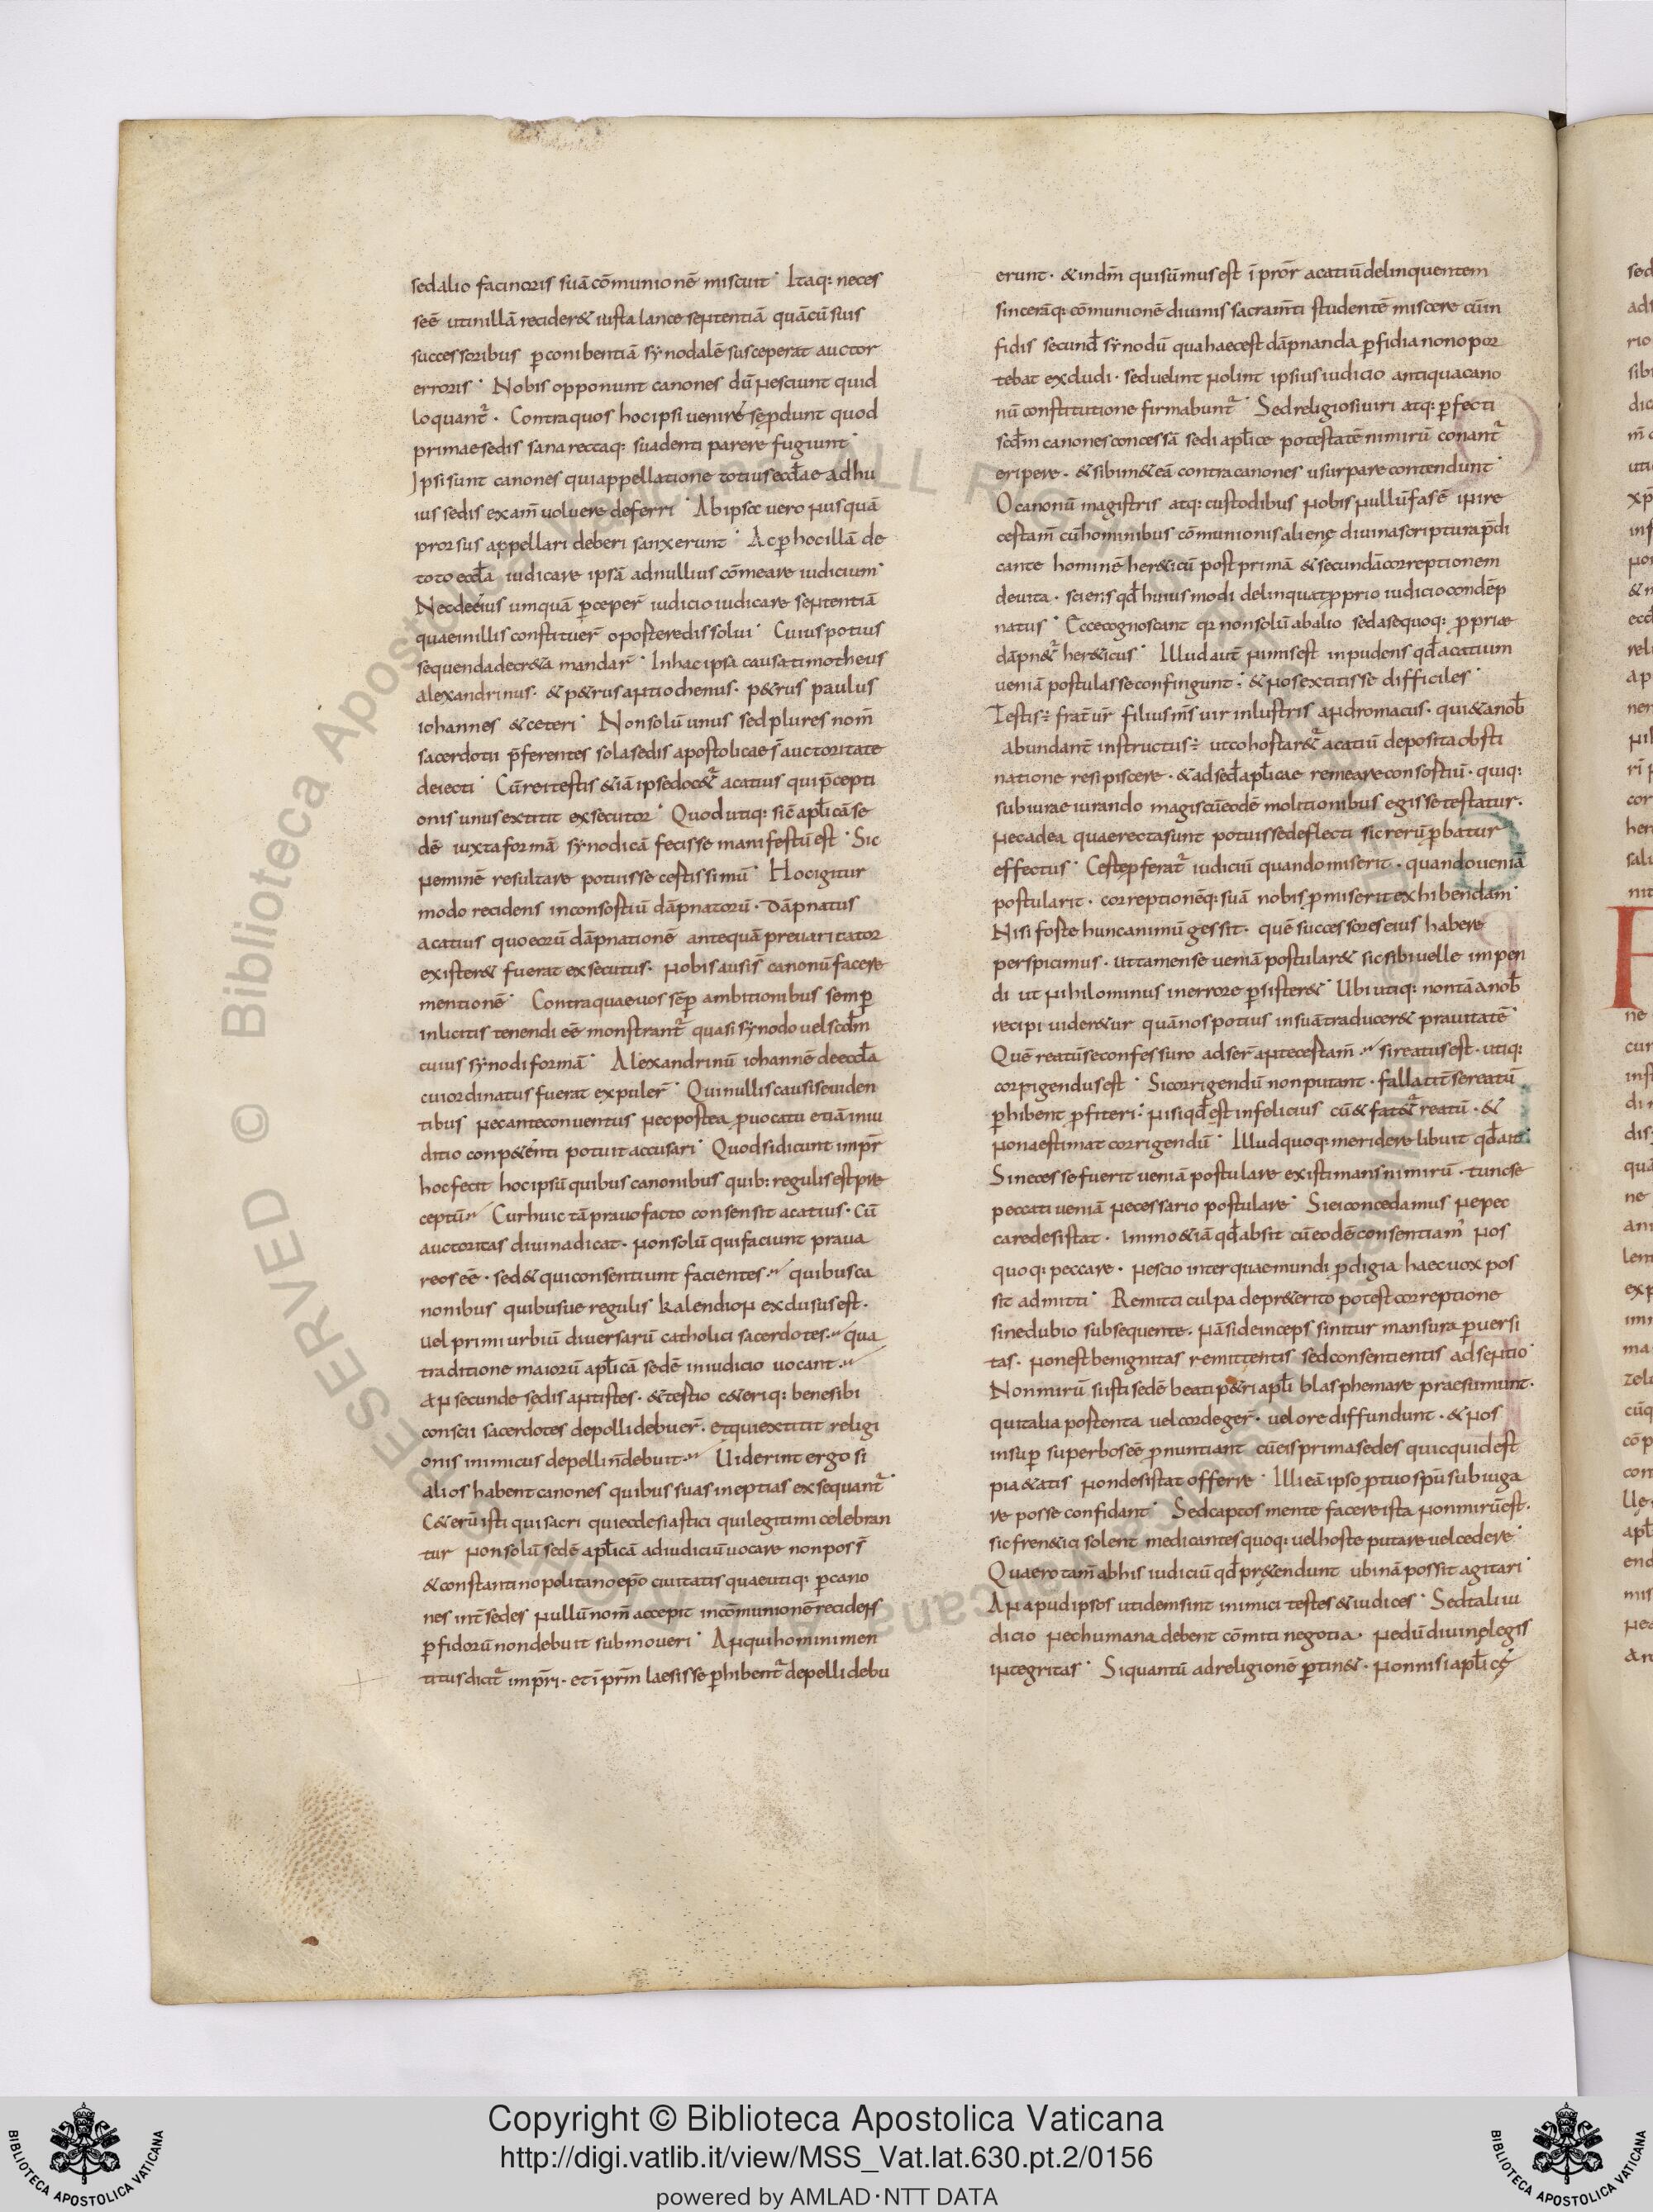 sed alio facinoris suā cōmunionē miscuit· Itaq: neces
seē ut in illā recider& iusta lance sententiā quācū suis
successoribus p conibentiā synodalē susceperat auctor
erroris· Nobis opponunt canones dū nesciunt quid
loquant̄· Contra quos hoc ipsi uenire sę pdunt quod
primae sedis sana rectaq: suadenti parere fugiunt·
Ipsi sunt canones qui appellatione totius eccłae ad hu
ius sedis exam̄ uoluere deferri· Ab ipsa uero nusquā
prorsus appellari deberi sanxerunt· Ac p hoc illā de
toto eccła iudicare ipsā ad nullius cōmeare iudicium·
Nec de eius umquā pceper̄ iudicio iudicare sententiā
quae in illis constituer̄ oposteredissolui· Cuius potius
sequenda decr&a mandar̄· In hac ipsa causa timotheus
alexandrinus· & p&rus antiochenus· p&rus paulus
iohannes & ceteri· Non solū unus sed plures nom̄
sacerdotii p̄ferentes sola sedis apostolicae s̄ auctoritate
deiecti· Cū rei testis &iā ipse doc&̄ acatius qui p̄cepti
onis unus extitit exsecutor· Quod utiq: sic̄ apłicā se
dē iuxta formā synodicā fecisse manifestū est· Sic
neminē resultare potuisse certissimū· Hoc igitur
modo recidens in consortiū dāpnatorū· dāpnatus
acatius quo eorū dāpnationē antequā preuaritator
exister& fuerat exsecutus· nobis ausis̄ canonū facere
mentionē· Contra quae uos sēp ambitionibus semp
inlicitis tenendi eē monstrant̄ quasi synodo uel scđm
cuius synodi formā· Alexandrinū iohannē de eccła
cui ordinatus fuerat expuler̄· Qui nullis causis euiden
tibus nec ante conuentus nec postea puocatu etiā in iu
ditio conp&enti potuit accusari· Quod si dicunt imp̄r
hoc fecit hoc ipsū quibus canonibus quib: regulis est pre
ceptū· Cur huic tā prauo facto consensit acatius· cū
auctoritas diuina dicat· non solū qui faciunt praua
reos eē· sed & qui consentiunt facientes· quibus ca
nonibus quibusue regulis kalendion exclusus est·
uel primi urbiū diuersarū catholici sacerdotes· qua
traditione maiorū apłicā sedē in iudicio uocant·
an secunde sedis antistes· & testio c&eriq: bene sibi
conscii sacerdotes depolli debuer̄· et qui extitit religi
onis inimicus depelli n̄ debuit· Uiderint ergo si
alios habent canones quibus suas ineptias exsequant̄·
C&erū isti qui sacri qui ecclesiastici qui legitimi celebran
tur non solū sedē apłicā ad iudiciū uocare non poss̄
& constantinopolitano ep̄o ciuitatis quae utiq: p cano
nes int̄ sedes nullū nom̄ accepit in cōmunionē recidens
pfidorū non debuit submoueri· An qui homini men
titus dicit̄ imp̄ri· et ī p̄rm laesisse phibent̄ depelli debu
erunt· & in dm̄ qui sūmus est ī pror̄ acatiū delinquentem
sincerāq: cōmunionē diuinis sacram̄ti studentē miscere cū in
fidis secund̄ synodū qua haec est dāpnanda pfidia non opor
tebat excludi· sed uelint nolint ipsius iudicio antiqua cano
nū constitutione firmabunt̄· Sed religiosi uiri atq: pfecti
scđm canones concessā sedi apłice potestatē nimirū conant̄
eripere· & sibim& eā contra canones usurpare contendunt·
O canonū magistris atq: custodibus nobis nullū fas ē inire
cestam̄ cū hominibus cōmunionis alienę diuina scriptura p̄di
cante hominē her&icū post primā & secundā correptionem
deuita· sciens qđ huius modi delinquat pprio iudicio condēp
natus· Ecce cognoscant qr non solū ab alio sed a se quoq: propriae
dāpn&̄ her&icus· Illud aut̄ nimis est inpudens qđ acatium
ueniā postulasse confingunt· & nos extitisse difficiles·
Testis ÷ frat̄ ur̄ filius nīs uir inlustris andromacus· qui & a nob̄
abundant̄ instructus ÷ ut cohostar&̄ acatiū deposita obsti
natione resipiscere· & ad sed̄ apłicae remeare consortiū· quiq:
sub iurae iurando magis cū eodē molitionibus egisse testatur·
nec ad ea quae recta sunt potuisse deflecti sic rerū pbatur
effectus· Ceste pferat̄ iudiciū quando miserit· quando ueniā
postularit· correptionēq: suā nobis pmiserit exhibendam·
Nisi forte hunc animū gessit· quē successores eius habere
perspicimus· ut tamen se ueniā postular& sic sibi uelle impen
di ut nihilominus in errore psister&· Ubi utiq: non tā a nob̄
recipi uider&ur quā nos potius in suā traducer& prauitatē·
Quē reatū se confessuro adser̄ ante cestam̄· si reatus est· utiq:
corrigendus est· Si corrigendū non putant· fallacit̄ se reatū
phibent pfiteri· nisi qđ est infelicius cū & fat&̄ reatū· &
non aestimat corrigendū· Illud quoq: me ridere libuit qđ ait·
Si necesse fuerit ueniā postulare existimans nimirū· tunc se
peccati ueniā necessario postulare· Si ei concedamus ne pec
care desistat· immo &iā qđ absit cū eodē consentiam̓ nos
quoq: peccare· nescio inter quae mundi pdigia haec uox pos
sit admitti· Remitti culpa de pr&erito potest correptione
sine dubio subsequente· nā si deinceps sinitur mansura puersi
tas· non est benignitas remittentis sed consentientis adsentio·
Non mirū si isti sedē beati p&ri apłi blasphemare praesumunt·
qui talia postenta uel corde geer̄· uel ore diffundunt· & nos
insup superbos eē pnuntiant cū eis prima sedes quicquid est
pia&atis non desistat offerre· Illi eā ipso ptuo sp̄u subiuga
re posse confidant· Sed captos mente facere ista non mirū est·
sic fren&ici solent medicantes quoq: uel hoste putare uel cedere·
Quaero tam̄ ab his iudiciū qđ pr&endunt ubinā possit agitari·
An apud ipsos ut idem sint inimici testes & iudices· Sed tali iu
dicio nec humana debent cōmitti negotia· nedū diuinę legis
integritas· Si quantū ad religionē ptin&· non nisi apłicę
Copyright © Biblioteca Apostolica Vaticana
http://digi.vatlib.it/view/MSS_Vat.lat.630.pt.2/0156
powered by AMLAD·NTT DATA